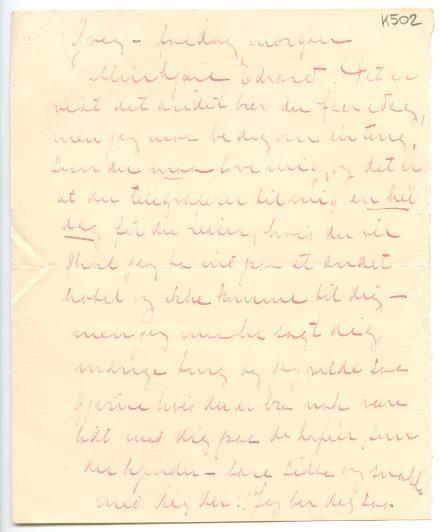 K502
– tirsdag morgen
Min kjære Edvard. Det er
vist det andet brev du faar idag,
men jeg maa be dig om en ting,
som du maa love mig, og det er
at du telegraferer til mig en hel
dag før du reiser, hvis du vil
skal jeg ta ind paa et andet
hotel og ikke komme til dig –
men jeg maa ha sagt dig
mange ting og jeg vilde saa
gjerne hvis du er bra nok være
lidt med dig paa de kaféer som
du kjender – bare sidde og snakke
med dig der!! Jeg ber dig saa